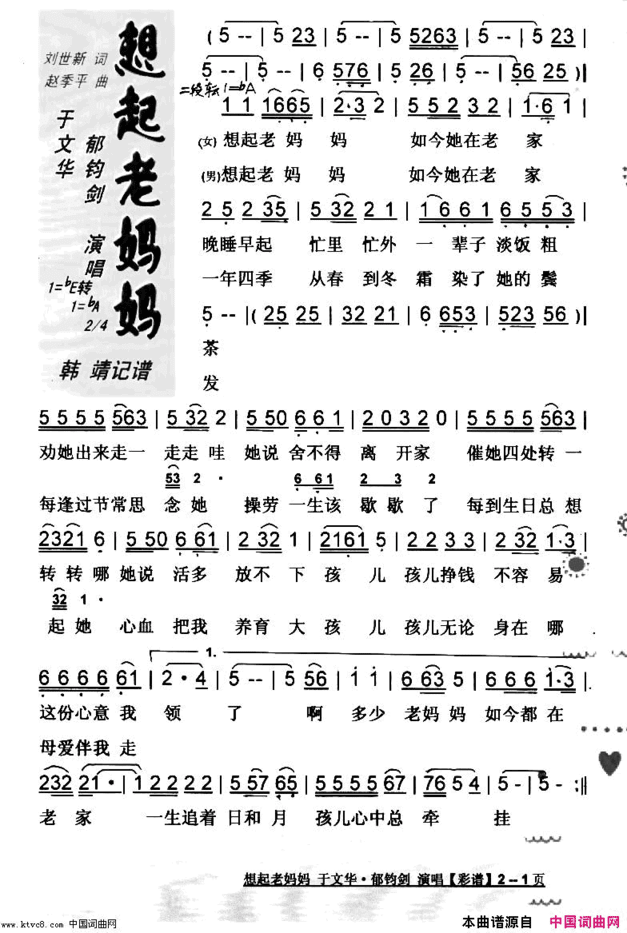 想起老妈妈
刘世新 词
赵季平 曲
于文华
郁钧剑 演唱
1=ᵇE转
1=ᵇA
2/4
韩 靖记谱
( 5 -- | 5 23 | 5 -- | 5 5263 | 5 -- | 523 |
5 -- | 5 -- | 6 576 | 5 26 | 5 -- | 56 25 )|
二段转1=ᵇA
1 1 1665 | 2·32 | 5 52 32 | 1·6 1 |
(女) 想起老 妈妈 妈 如今她在老 家
(男)想起老 妈妈 妈 如今她在老 家
2 52 35 | 5 32 21 | 1 661 65 53 |
晚睡早起 忙里 忙外 一 辈子 淡饭 粗
一年四季 从春 到冬 霜 染了 她的 鬓
5 -- |( 25 25 | 5 61 | 6 653 | 523 56 )|
茶
发
5555 563 | 5 32 2 | 550 661 | 20320 | 5555 563 |
劝她出来走一 走走 哇 她说 舍不得 离 开家 催她四处转一
53 2 · 6 61 2 3 2
每逢过节常思 念她 操劳 一生该 歇歇 了 每到生日总 想
2321 6 | 5 50 661 | 2 32 2161 5 | 2 23 22 | 2 32 1·3 |
转转 哪 她说 活多 放不 下 孩 儿 孩儿挣钱 不容 易
32 1 ·
起她 心血 把我 养育 大 孩 儿 孩儿无论 身在 哪
1.
6666 61 | 2·4 | 5 -- | 5 56 | 1 -- | 6 63 5 | 666 61 |
这份心意 我 领 了 啊 多少 老妈 妈 如今都 在
母爱伴我 走
232 21· | 122 22 | 557 65 | 5555 67 | 765 4 | 5 -- | 5 - :||
老 家 一生追着 日和 月 孩儿心中总 牵 挂
想起老妈妈 于文华·郁钧剑 演唱【彩谱】2－1页
www.ktvc8.com 中国词曲网
本曲谱源自 中国词曲网